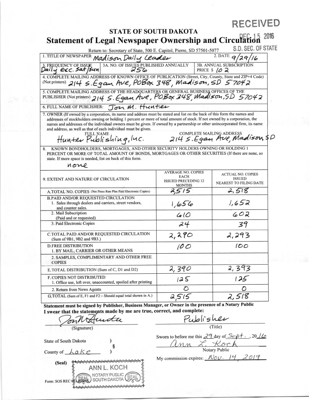 RECEIVED
DEC 15 2016
S.D. SEC. OF STATE
STATE OF SOUTH DAKOTA
Statement of Legal Newspaper Ownership and Circulation
Return to: Secretary of State, 500 E. Capitol, Pierre, SD 57501-5077
1. TITLE OF NEWSPAPER Madison Daily Leader
2. DATE 9/29/16
3. FREQUENCY OF ISSUE Daily exc. Sat/Sun
3A. NO. OF ISSUES PUBLISHED ANNUALLY 256
3B. ANNUAL SUBSCRIPTION PRICE $ 102
4. COMPLETE MAILING ADDRESS OF KNOWN OFFICE OF PUBLICATION (Street, City, County, State and ZIP+4 Code)
(Not printers) 214 S. Egan Ave, PO Box 348, Madison, SD 57042
5. COMPLETE MAILING ADDRESS OF THE HEADQUARTERS OR GENERAL BUSINESS OFFICES OF THE
PUBLISHER (Not printer) 214 S. Egan Ave, PO Box 348, Madison, SD 57042
6. FULL NAME OF PUBLISHER: Jon M. Hunter
7. OWNER (If owned by a corporation, its name and address must be stated and
addresses of stockholders owning or holding 1 percent or more of total amount of stock. If not owned by a corporation, the
names and addresses of the individual owners must be given. If owned by a partnership or other unincorporated firm, its name
and address, as well as that of each individual must be given.
FULL NAME
COMPLETE MAILING ADDRESS
Hunter Publishing, Inc. 214 S. Egan Ave, Madison, SD
8. KNOWN BONDHOLDERS, MORTGAGES, AND OTHER SECURITY HOLDERS OWNING OR HOLDING 1
PERCENT OR MORE OF TOTAL AMOUNT OF BONDS, MORTGAGES OR OTHER SECURITIES (If there are none, so
state. If more space is needed, list on back of this form.
none
9. EXTENT AND NATURE OF CIRCULATION
AVERAGE NO. COPIES EACH ISSUED PRECEDING 12 MONTHS
ACTUAL NO. COPIES ISSUED NEAREST TO FILING DATE
A. TOTAL NO. COPIES (Net Press Run Plus Paid Electronic Copies) 2515 2,518
B. PAID AND/OR REQUESTED CIRCULATION
1. Sales through dealers and carriers, street vendors, and counter sales. 1,656 1,652
2. Mail Subscription (Paid and or requested) 610 602
3. Paid Electronic Copies 24 39
C. TOTAL PAID AND/OR REQUESTED CIRCULATION (Sum of 9B1, 9B2 and 9B3.) 2,290 2,293
D. FREE DISTRIBUTION
1. BY MAIL, CARRIER OR OTHER MEANS 100 100
2. SAMPLES, COMPLIMENTARY AND OTHER FREE COPIES
E. TOTAL DISTRIBUTION (Sum of C, D1 and D2) 2,390 2,393
F. COPIES NOT DISTRIBUTED
1. Office use, left over, unaccounted, spoiled after printing 125 125
2. Return from News Agents 0 0
G. TOTAL (Sum of E, F1 and F2 – Should equal total shown in A.) 2515 2,518
Statement must be signed by Publisher, Business Manager, or Owner in the presence of a Notary Public
I swear that the statements made by me are true, correct, and complete:
Jon M Hunter
Publisher
(Signature)
(Title)
State of South Dakota )
) §
County of Lake )
Sworn to before me this 29 day of Sept. 2016
Ann L. Koch
Notary Public
My commission expires: Nov. 14, 2017
(Seal)
ANN L. KOCH
NOTARY PUBLIC
SOUTH DAKOTA